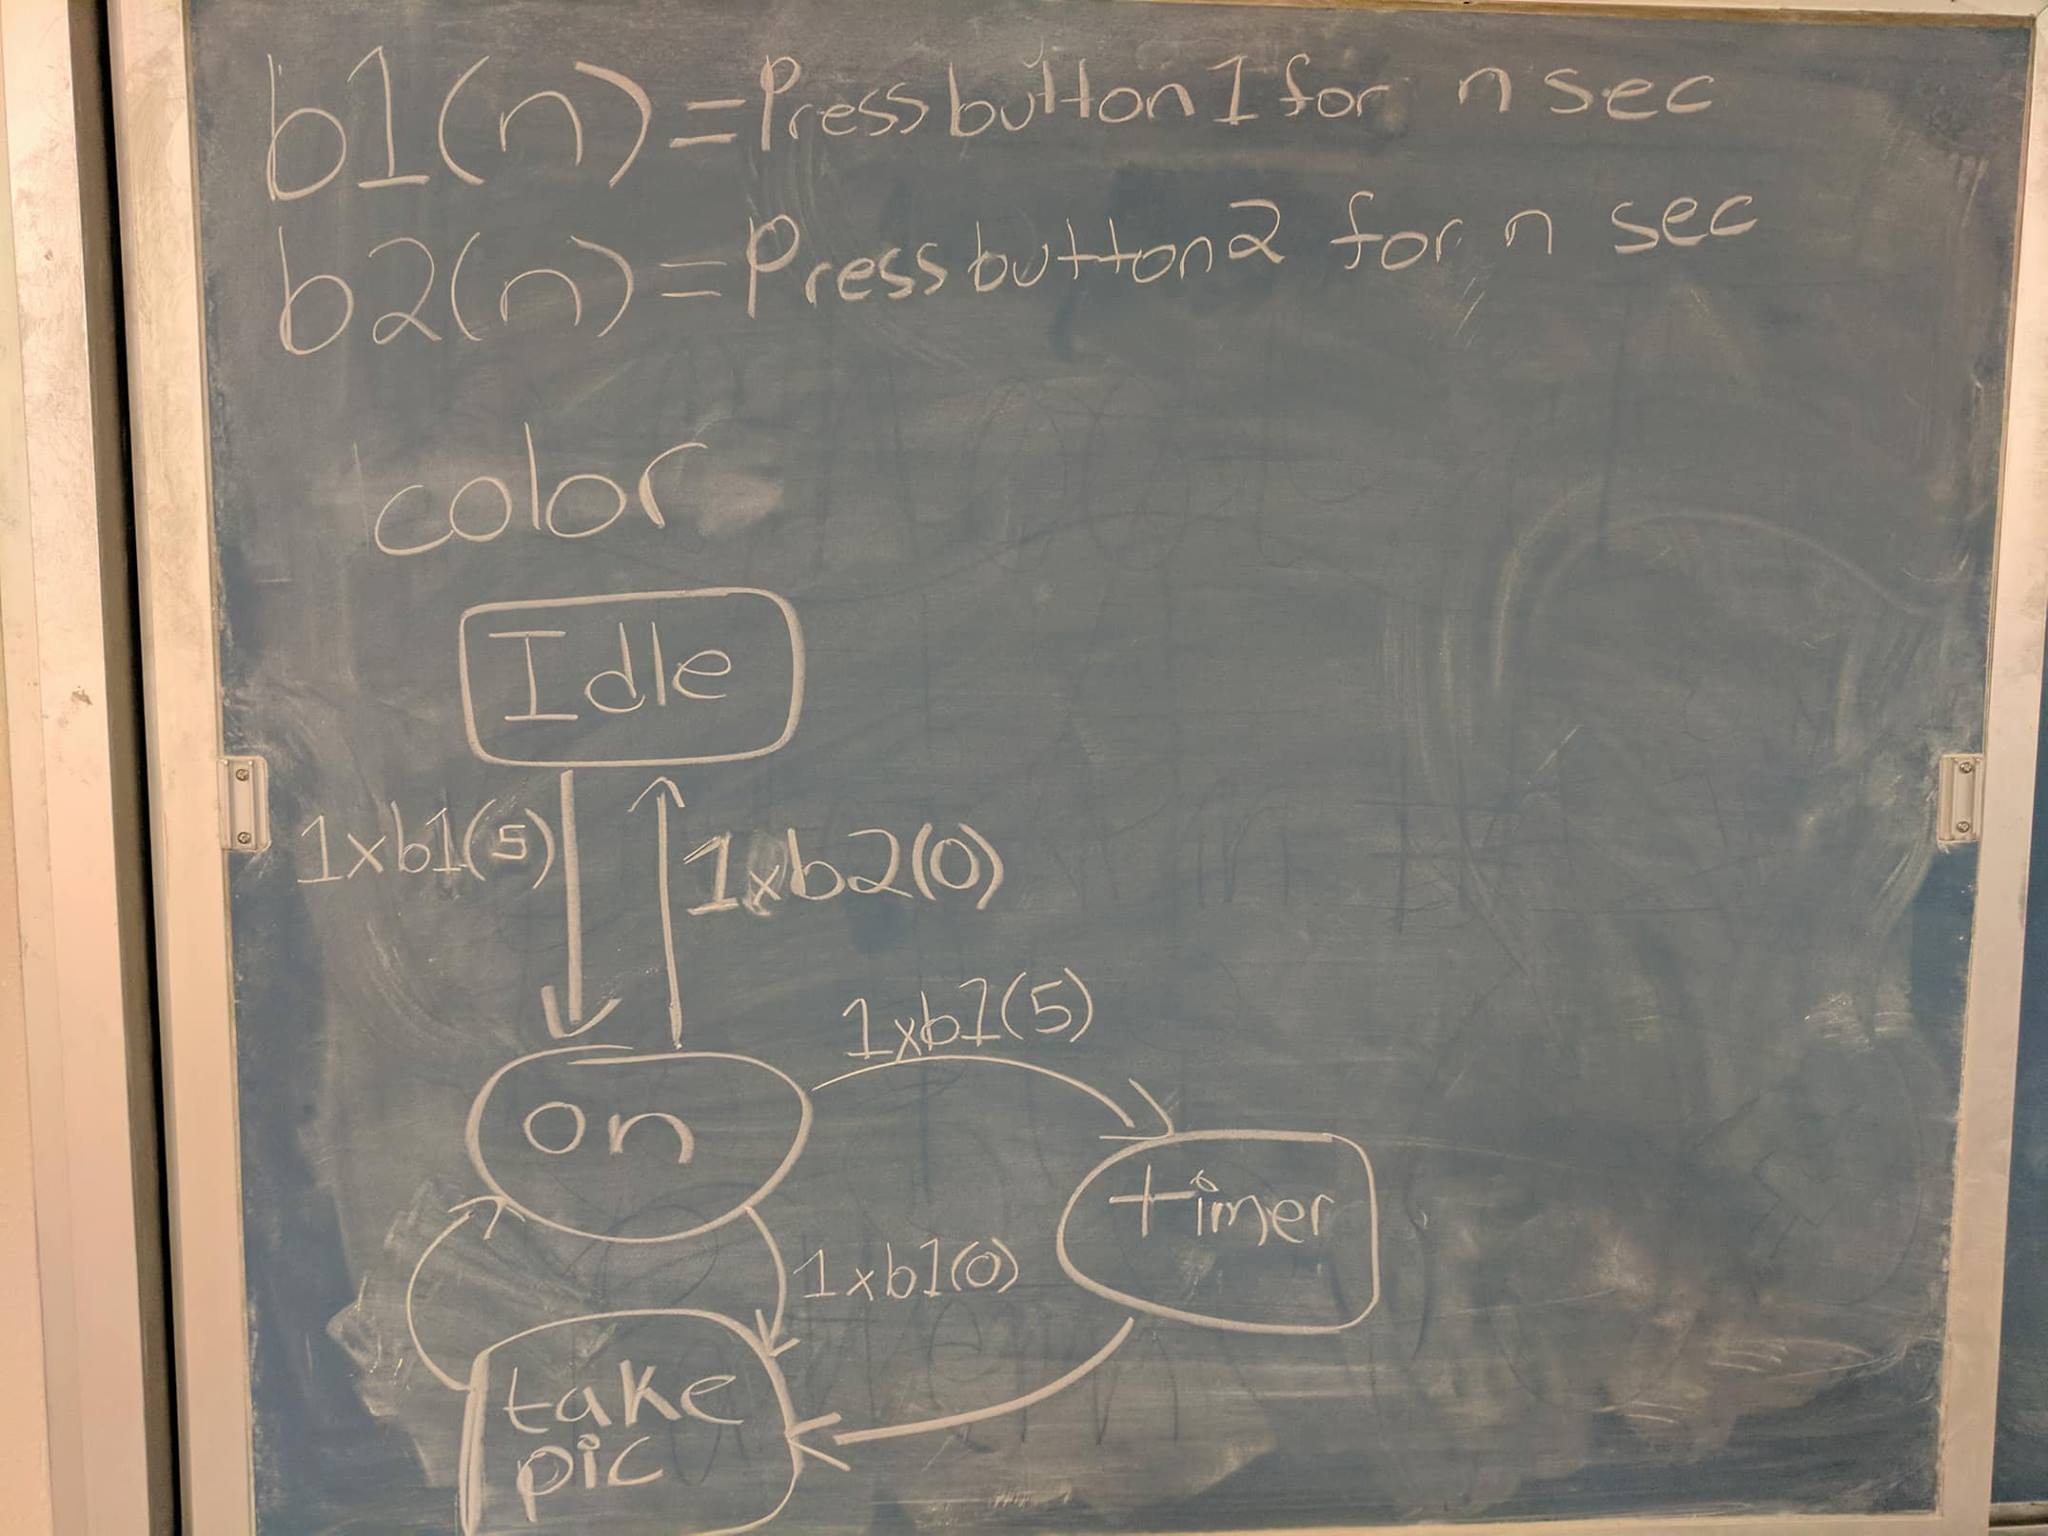 b1(n) = Press button 1 for n sec
b2(n) = Press button 2 for n sec
color
Idle
1xb1(5)
1xb2(0)
1xb1(5)
on
timer
1xb1(0)
take
pic